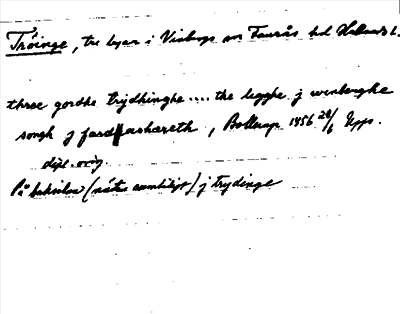 Tröinge, tre byar i Vinbergs sn Faurås hd Hallands l.
three gordhe trydhinghe .... the legghe j wenberghe
songh j fard ashareth, Bollerup 1456 28/6 Upps.
dipl. orig.
På baksidan (nästan samtidigt) j trydinge